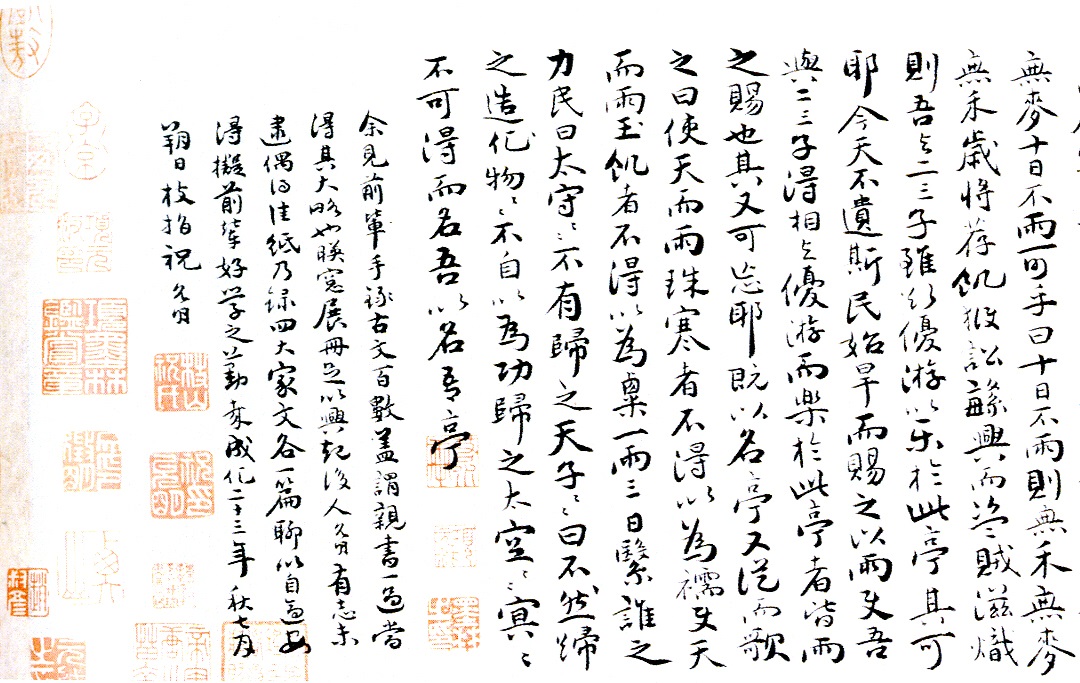 無麥十日不雨可乎曰十日不雨則無禾無麥
無禾歲將荐飢獄訟繇興而盗賊滋熾
則吾與二三子雖欲優游以樂於此亭其可
耶今天不遺斯民始旱而賜之以雨使吾
與二三子得相與優游而樂於此亭者皆雨
之賜也其又可忘耶既以名亭又從而歌
之曰使天而雨珠寒者不得以為襦使天
而雨玉飢者不得以為粟一雨三日繄誰之
力民曰太守〻〻不有歸之天子〻〻曰不然歸
之造化物〻不自以為功歸之太空〻〻冥〻
不可得而名吾以名吾亭
余見前輩手錄古文百數蓋謂親書一過當
得其大略也暎窓展冊足以興起後人允明有志未
逮偶得佳紙乃録四大家文各一篇聊以自適安
得擬前輩好學之勤哉成化二十三年秋七月
朔日枝指祝允明
項墨林鑑賞章
枝山
祝氏
祝允明印